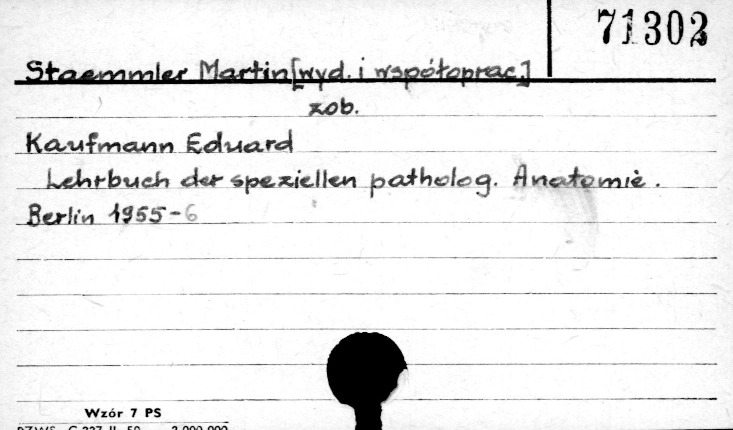 71302
Staemmler Martin [wyd. i współoprac.]
zob.
Kaufmann Eduard
Lehrbuch der speziellen patholog. Anatomie.
Berlin 1955-6
Wzór 7 PS